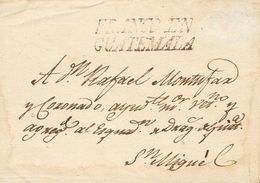 FRANCO EN
GUATEMALA
A Dn. Rafael Montufar
y Coronado, ayute. mor. vetno. y
agregdo. al Esquadn. e Drags. e
Sn. Miguèl